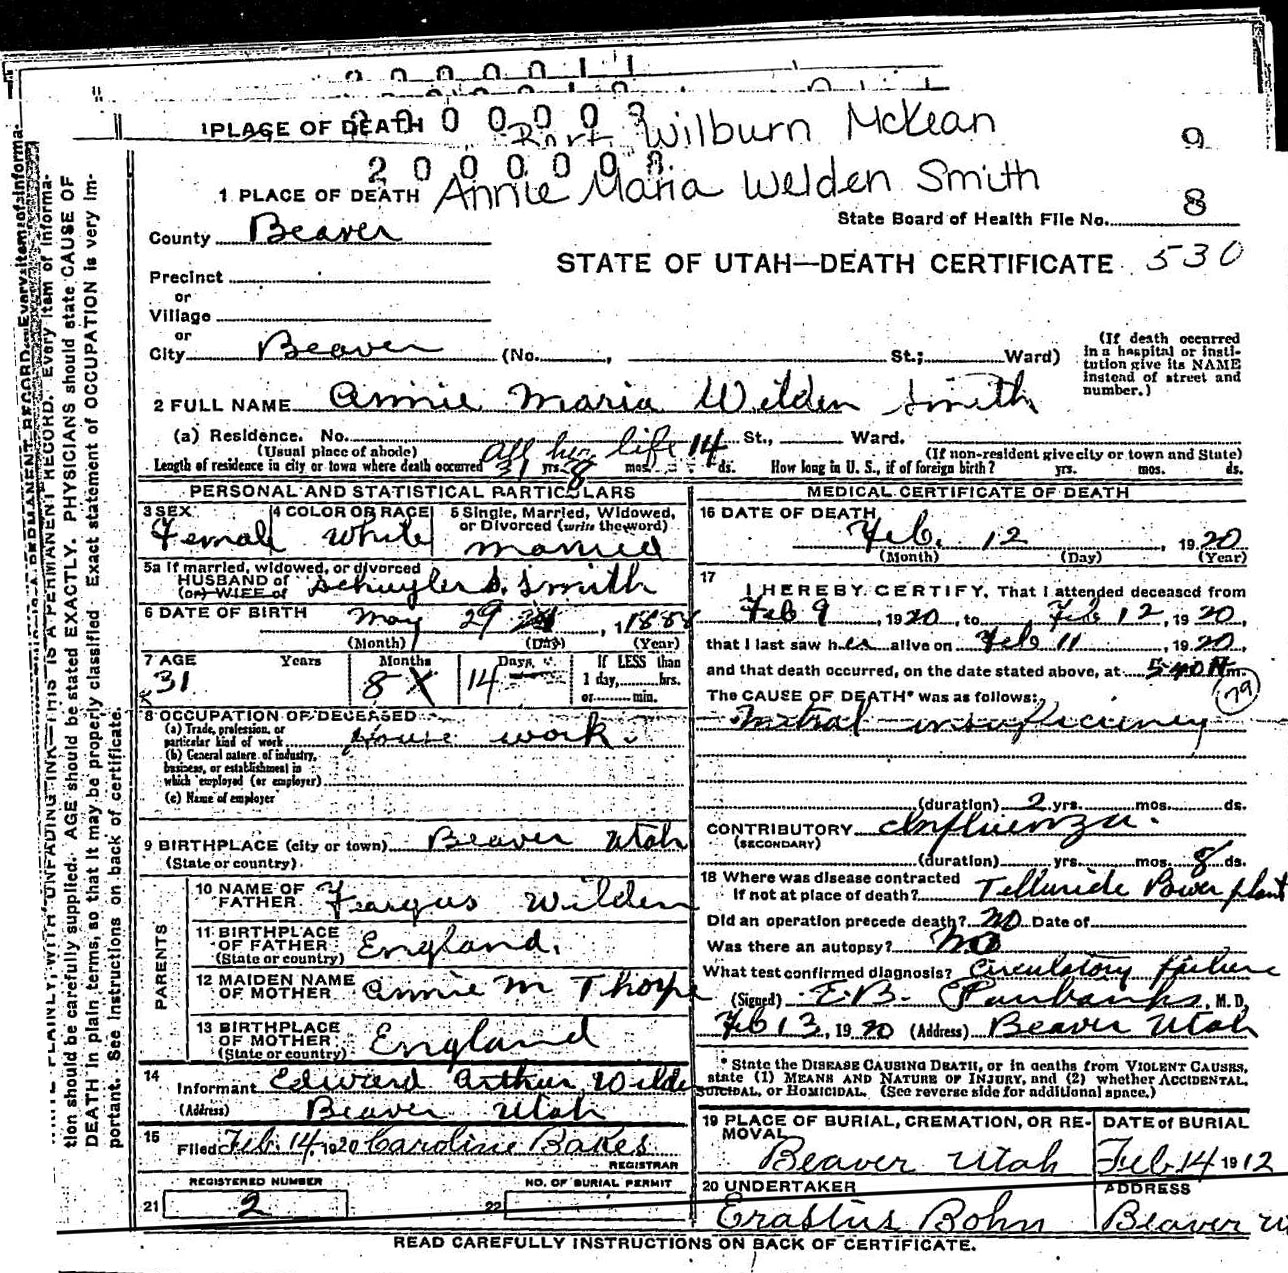 2 0 0 0 0 1 1
1 PLACE OF DEATH 2 0 0 0 0 0 9 Wilburn McKean 9
2 0 0 0 0 0 8
1 PLACE OF DEATH Annie Maria Welden Smith
State Board of Health File No. 8
County Beaver
STATE OF UTAH—DEATH CERTIFICATE 530
Precinct
or
Village
or
City Beaver (No. , St.; Ward)
(If death occurred in a hospital or institution give its NAME instead of street and number.)
2 FULL NAME Annie Maria Wilden Smith
(a) Residence. No. St., Ward.
(Usual place of abode) (If non-resident give city or town and State)
all her life
Length of residence in city or town where death occurred 31 yrs. 8 mos. 14 ds. How long in U. S., if of foreign birth? yrs. mos. ds.
PERSONAL AND STATISTICAL PARTICULARS
3 SEX Female
4 COLOR OR RACE White
5 Single, Married, Widowed, or Divorced (write the word) married
5a If married, widowed, or divorced
HUSBAND of
(or) WIFE of Schuyler S. Smith
6 DATE OF BIRTH May 29, 1888
(Month) (Day) (Year)
7 AGE Years 31 Months 8 Days 14
If LESS than 1 day, hrs. or min.
8 OCCUPATION OF DECEASED
(a) Trade, profession, or particular kind of work House work.
(b) General nature of industry, business, or establishment in which employed (or employer)
(c) Name of employer
9 BIRTHPLACE (city or town) Beaver Utah
(State or country)
PARENTS
10 NAME OF FATHER Feargus Wilden
11 BIRTHPLACE OF FATHER (State or country) England.
12 MAIDEN NAME OF MOTHER Annie M Thorpe
13 BIRTHPLACE OF MOTHER (State or country) England
14 Informant Edward Arthur Wilde
(Address) Beaver Utah
15 Filed Feb. 14, 1920 Caroline Bakes
REGISTRAR
REGISTERED NUMBER
21 2
NO. OF BURIAL PERMIT
22
MEDICAL CERTIFICATE OF DEATH
16 DATE OF DEATH
Feb. 12, 1920
(Month) (Day) (Year)
17 I HEREBY CERTIFY, That I attended deceased from
Feb 9, 1920, to Feb 12, 1920,
that I last saw her alive on Feb 11, 1920,
and that death occurred, on the date stated above, at 540 A m.
The CAUSE OF DEATH* was as follows: 79
Mitral insufficiency
(duration) 2 yrs. mos. ds.
CONTRIBUTORY Influenza.
(SECONDARY)
(duration) yrs. mos. 8 ds.
18 Where was disease contracted
If not at place of death? Telluride Power plant
Did an operation precede death? no Date of
Was there an autopsy? no
What test confirmed diagnosis? Circulatory failure
(Signed) E.B. Fairbanks, M. D.
Feb 13, 1920 (Address) Beaver Utah
* State the DISEASE CAUSING DEATH, or in deaths from VIOLENT CAUSES,
state (1) MEANS AND NATURE OF INJURY, and (2) whether ACCIDENTAL,
SUICIDAL, OR HOMICIDAL. (See reverse side for additional space.)
19 PLACE OF BURIAL, CREMATION, OR REMOVAL Beaver Utah
DATE of BURIAL Feb 14 1912
20 UNDERTAKER Erastus Bohn
ADDRESS Beaver
READ CAREFULLY INSTRUCTIONS ON BACK OF CERTIFICATE.
WRITE PLAINLY, WITH UNFADING INK—THIS IS A PERMANENT RECORD. Every item of informa-
tion should be carefully supplied. AGE should be stated EXACTLY. PHYSICIANS should state CAUSE OF
DEATH in plain terms, so that it may be properly classified. Exact statement of OCCUPATION is very im-
portant. See instructions on back of certificate.